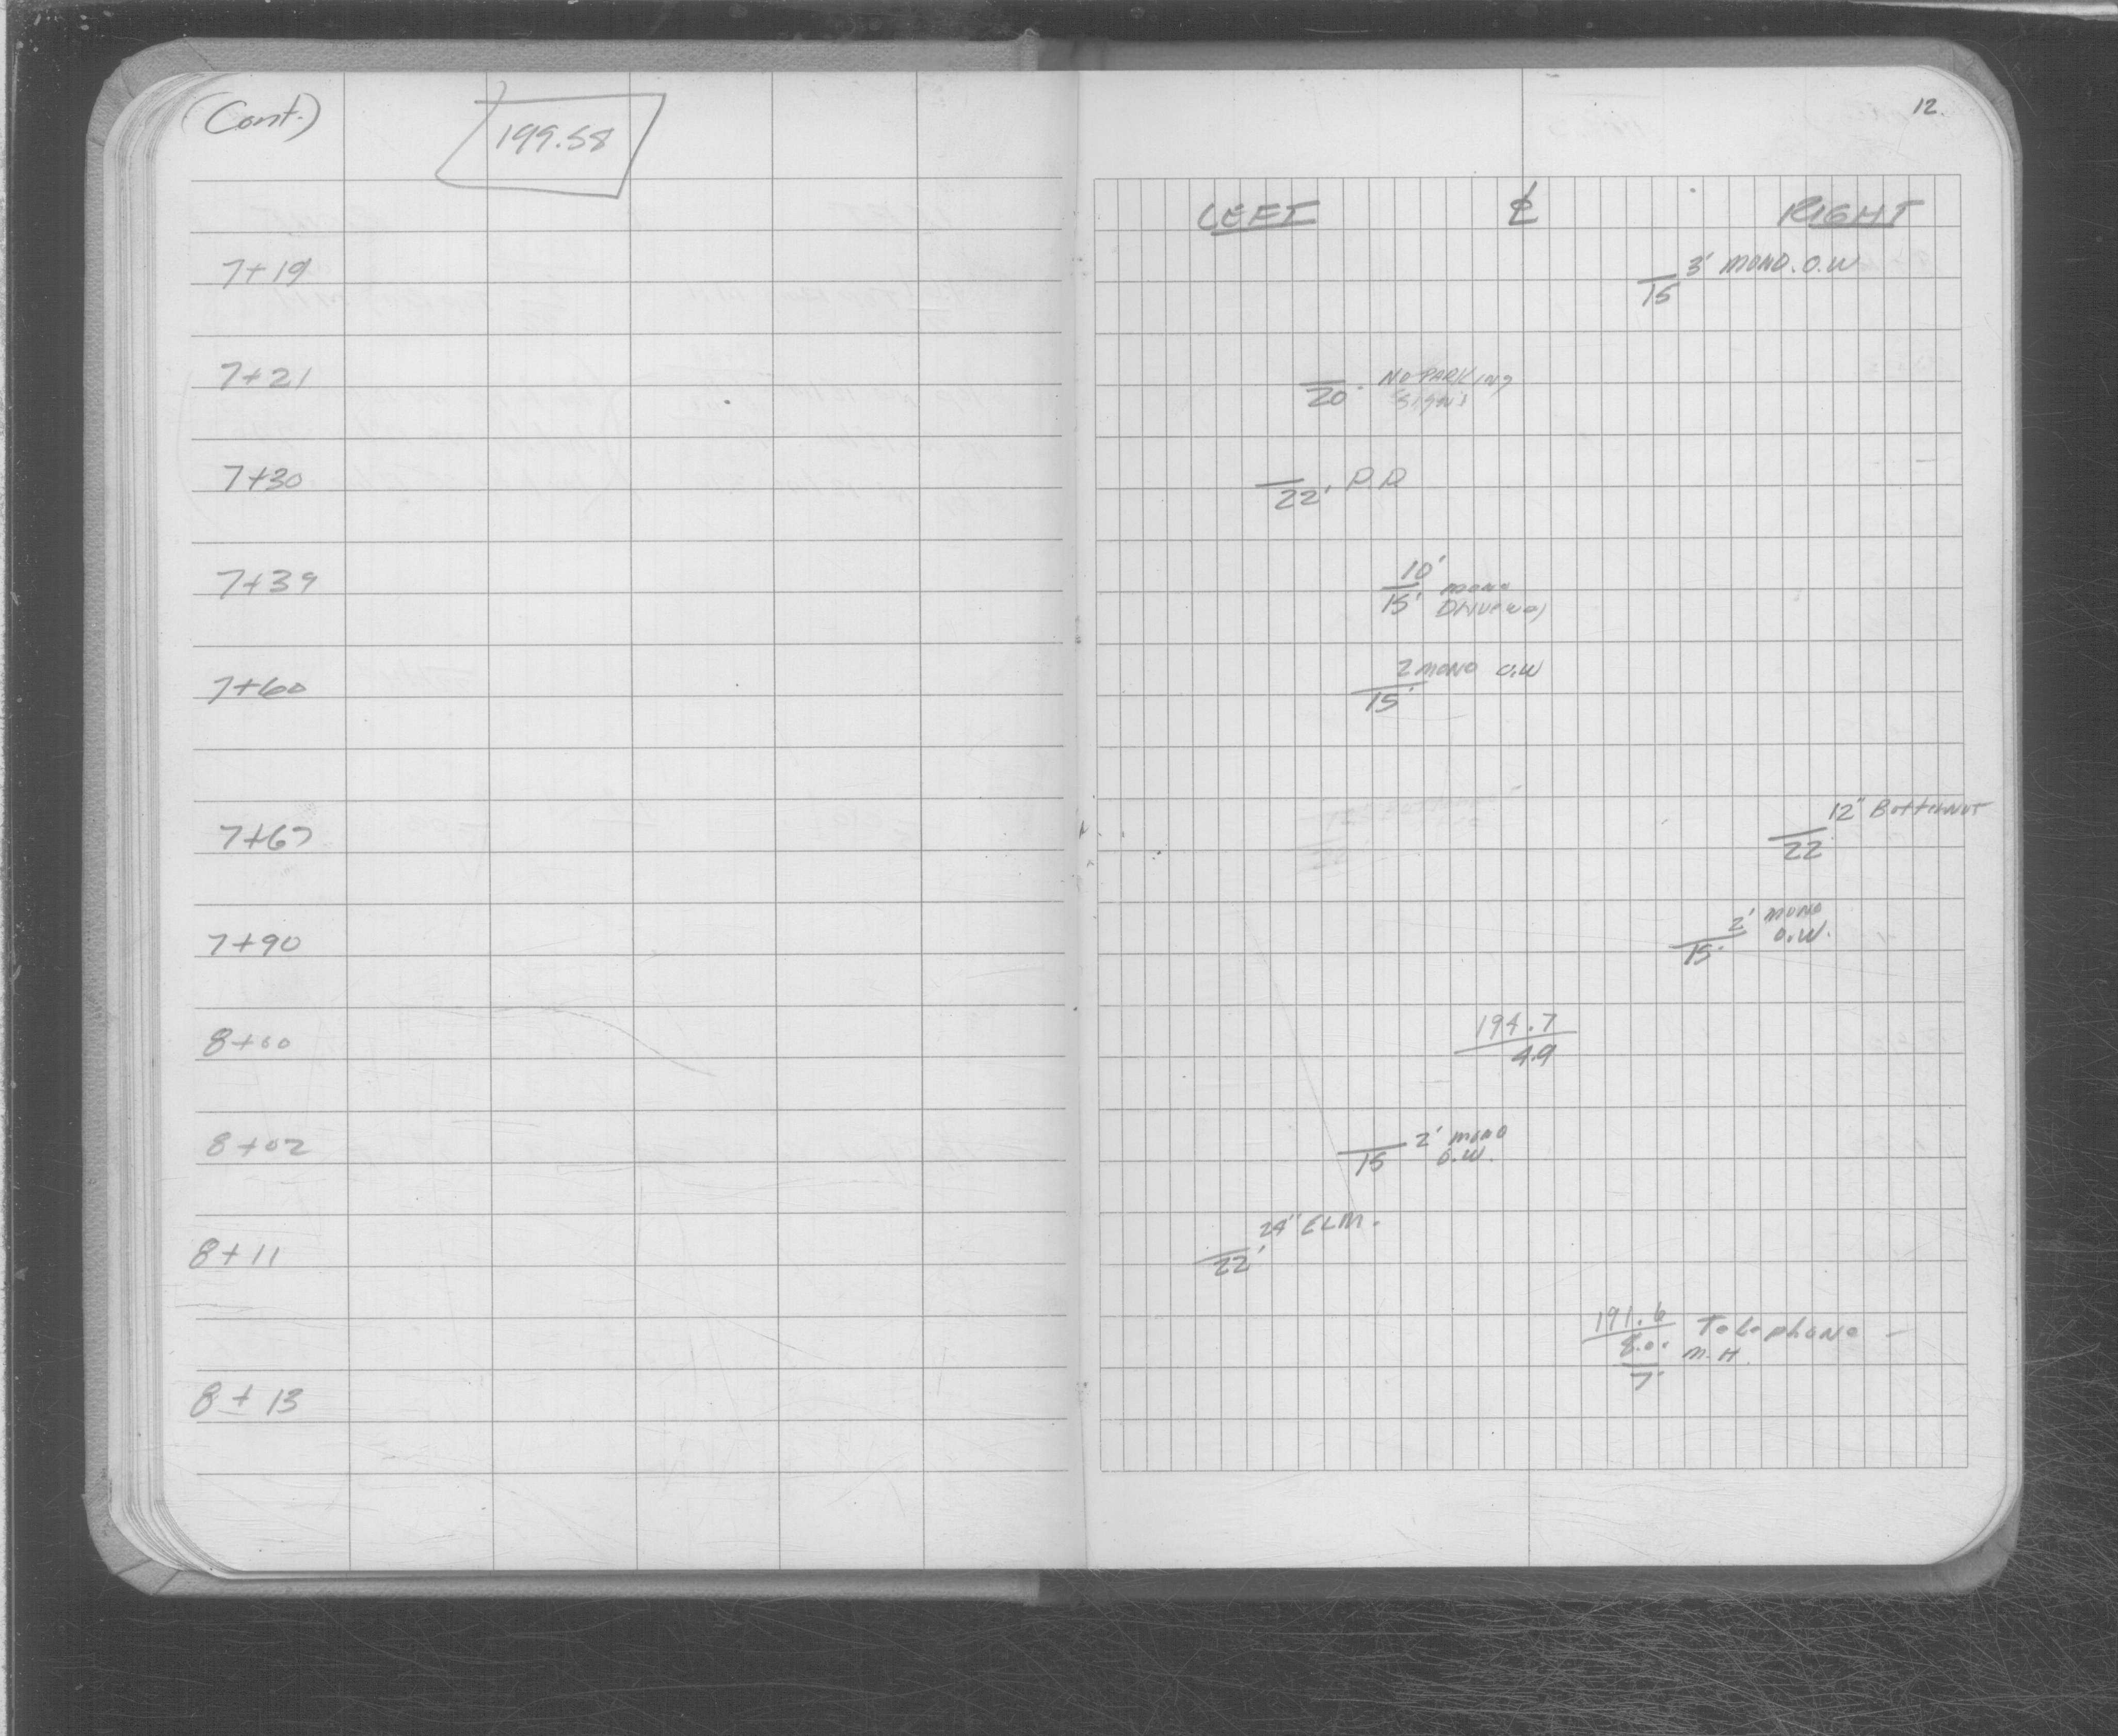 (Cont.)
199.58
12.
LEFT ℄ RIGHT
7+19
3' MONO. O.W
15
7+21
20' NO PARKING
SIGN
7+30
22' P.P
7+39
10'
15' mono
Driveway
7+60
2 MONO O.W
15'
7+67
12" Butternut
22
7+90
2' MONO
15' O.W.
8+00
194.7
4.9
8+02
2' MONO
15 O.W.
8+11
24" ELM.
22'
191.6 Telephone
8.0 M.H.
7'
8+13